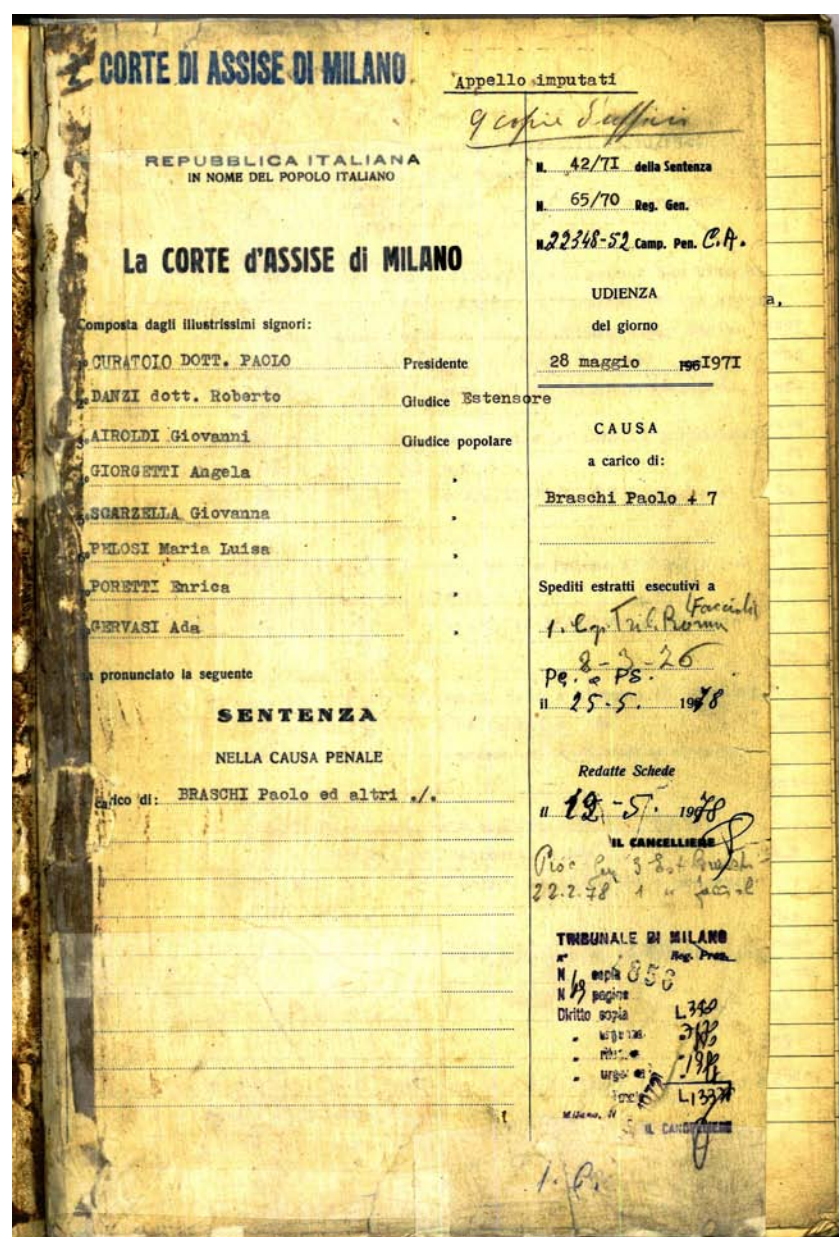 CORTE DI ASSISE DI MILANO
Appello imputati
9 copie d'ufficio
REPUBBLICA ITALIANA
IN NOME DEL POPOLO ITALIANO
La CORTE d'ASSISE di MILANO
Composta dagli illustrissimi signori:
CURATOLO DOTT. PAOLO Presidente
DANZI dott. Roberto Giudice Estensore
3. AIROLDI Giovanni Giudice popolare
GIORGETTI Angela "
SCARZELLA Giovanna "
6. PELOSI Maria Luisa "
PORETTI Enrica "
GERVASI Ada "
pronunciato la seguente
SENTENZA
NELLA CAUSA PENALE
carico di: BRASCHI Paolo ed altri ./.
N. 42/7I della Sentenza
N. 65/70 Reg. Gen.
N. 22348-52 Camp. Pen. C.A.
UDIENZA
del giorno
28 maggio 196I97I
a,
CAUSA
a carico di:
Braschi Paolo + 7
Spediti estratti esecutivi a
1. Cp. Trib. Roma
8-3-76
PS.
il 25-5. 1978
Redatte Schede
il 12-5. 1978
IL CANCELLIERE
22.2.78 1
TRIBUNALE DI MILANO
N° Reg. Pron.
N copia
N pagine
Diritto copia
" urgenza
" urgenza
Milano, li
IL CANCELLIERE